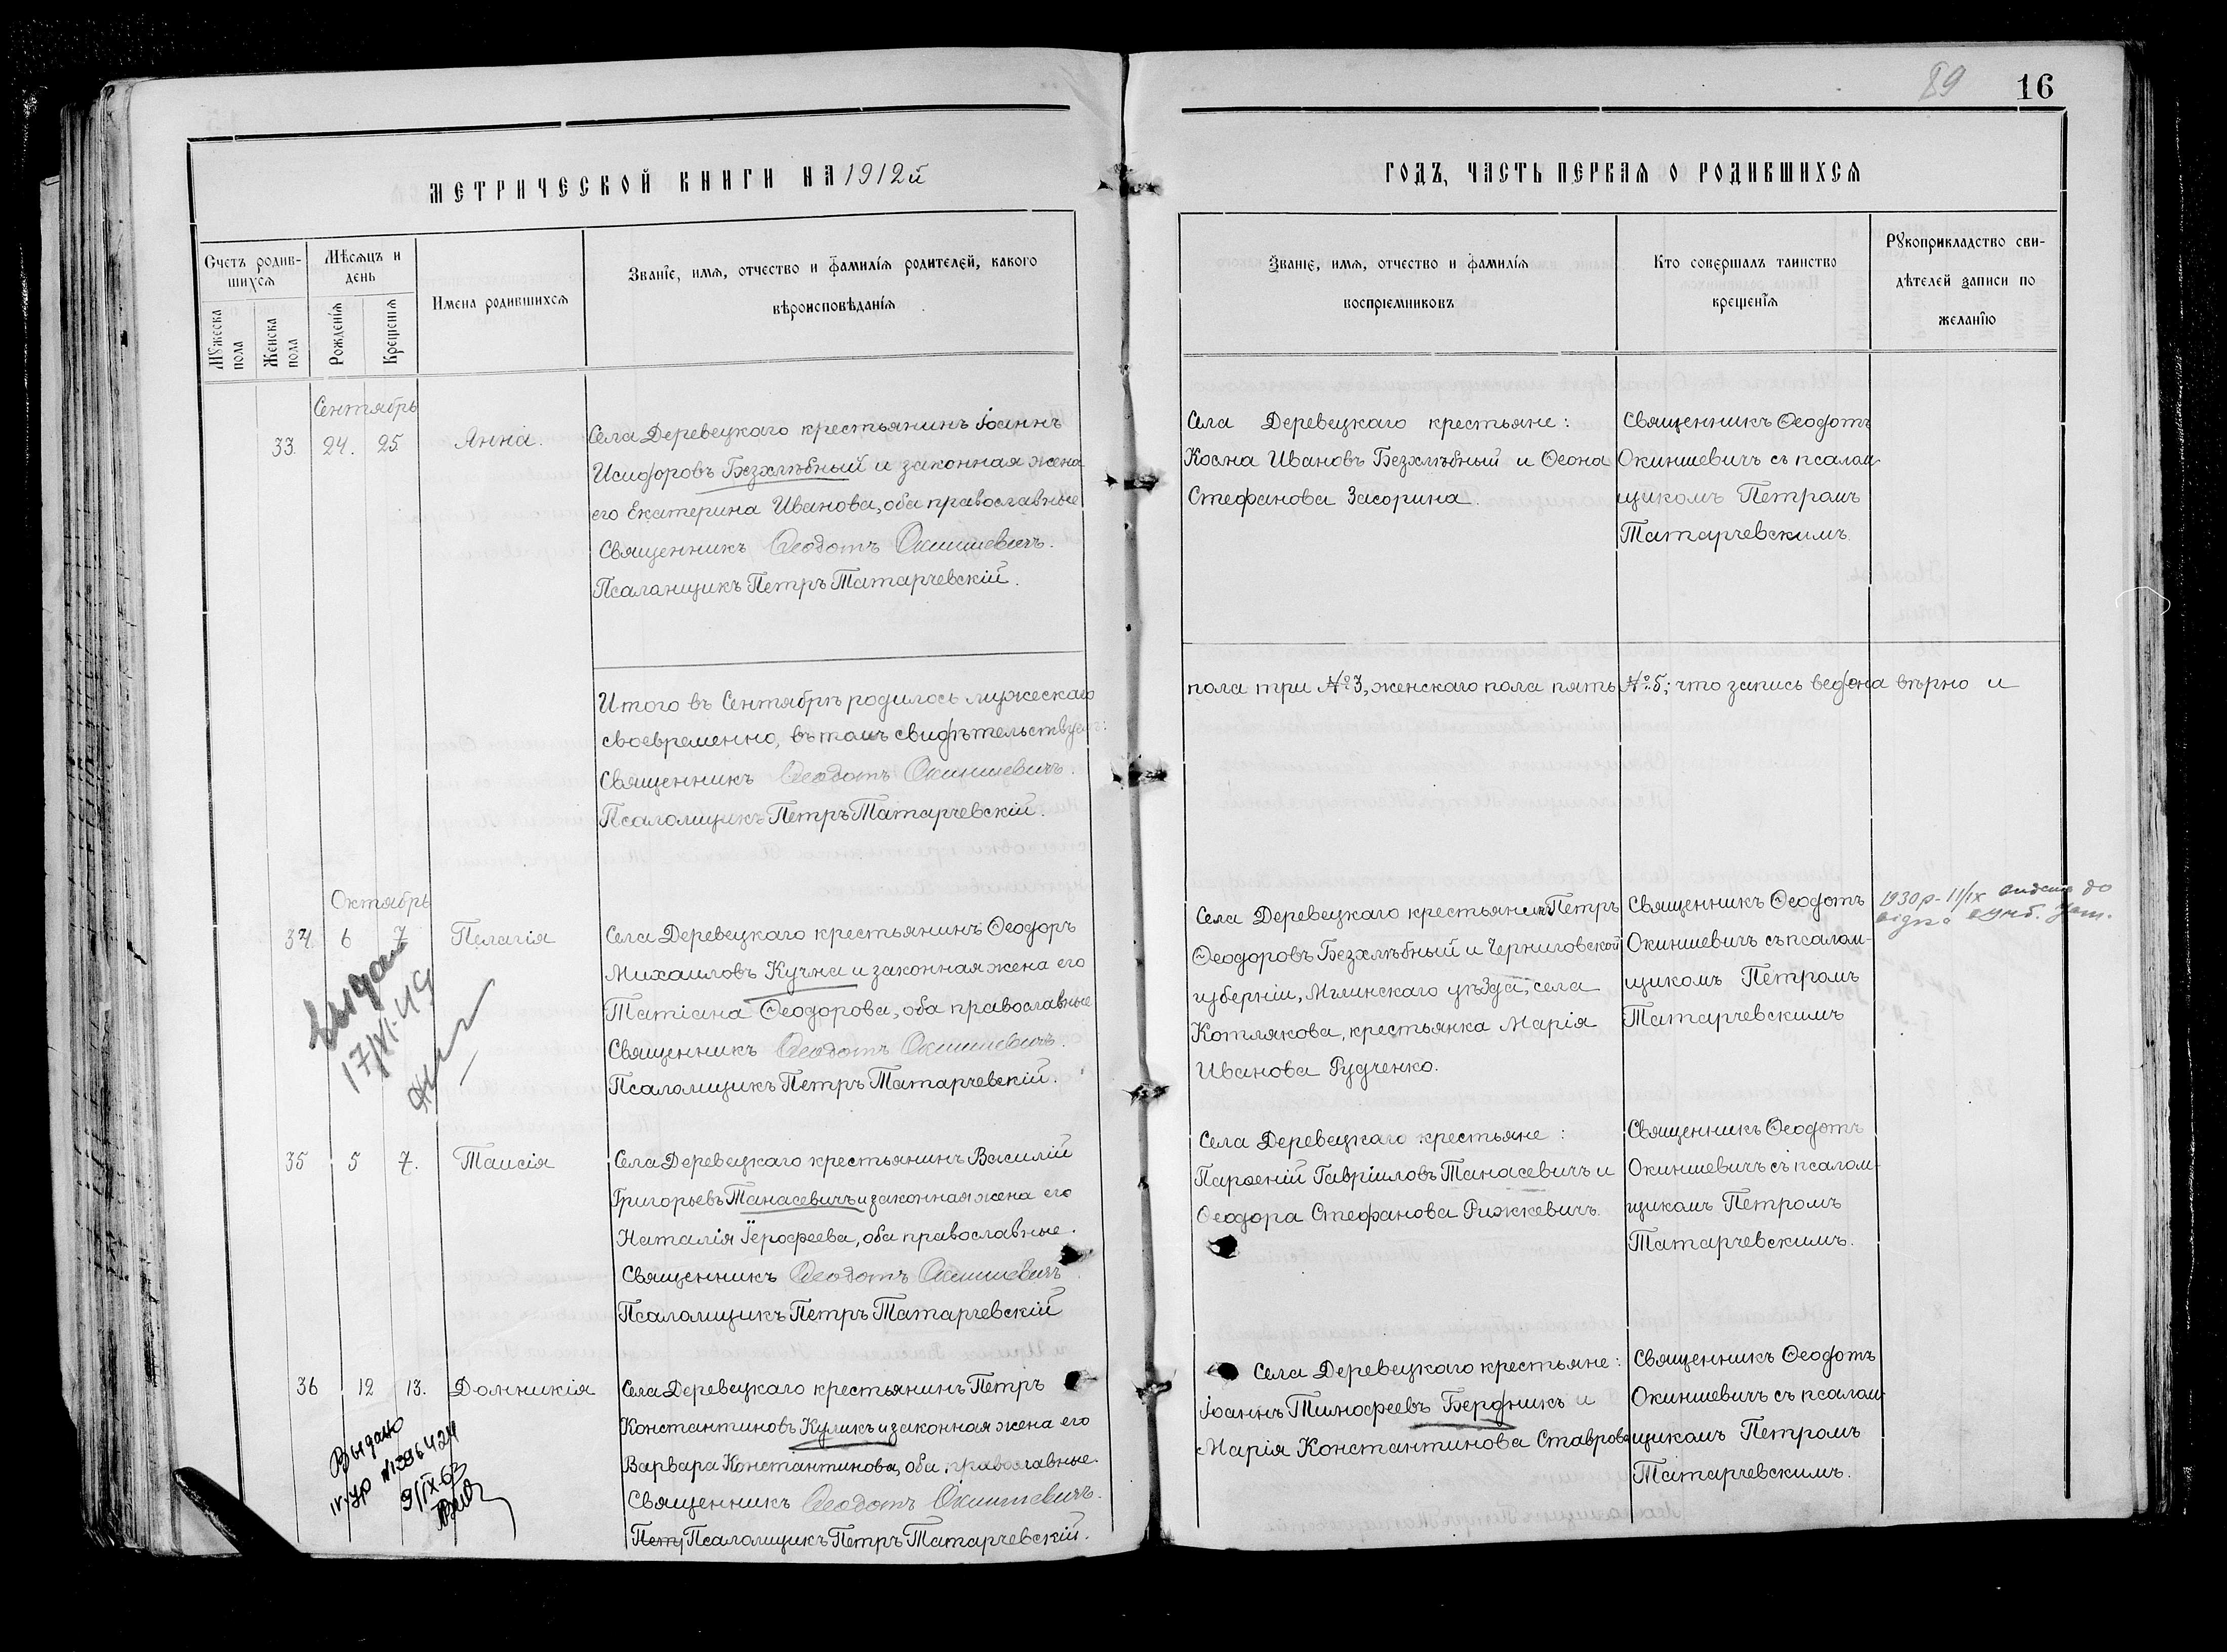 89
16
МЕТРИЧЕСКОЙ КНИГИ НА 1912й
ГОДЪ, ЧАСТЬ ПЕРВАЯ О РОДИВШИХСЯ
Счетъ родив-
шихся
Мужеска пола
Женска пола
Мѣсяцъ и
день
Рожденія
Крещенія
Имена родившихся
Званіе, имя, отчество и фамилія родителей, какого
вѣроисповѣданія
Званіе, имя, отчество и фамилія
воспріемниковъ
Кто совершалъ таинство
крещенія
Рукоприкладство сви-
дѣтелей записи по
желанію
Сентябрь
33. 24. 25. Анна.
Села Деревецкаго крестьянинъ Іоаннъ
Исидоровъ Безхлѣбный и законная жена
его Екатерина Иванова, оба православные
Священникъ Ѳеодотъ Окиншевичъ.
Псаломщикъ Петръ Татарчевскій.
Села Деревецкаго крестьяне:
Косма Ивановъ Безхлѣбный и Ѳеона
Стефанова Засорина.
Священникъ Ѳеодотъ
Окиншевичъ съ псалом-
щикомъ Петромъ
Татарчевскимъ.
Итого въ Сентябрѣ родилось мужескаго
пола три №3, женскаго пола пять №5; что запись ведена вѣрно и
своевременно, въ томъ свидѣтельствуемъ:
Священникъ Ѳеодотъ Окиншевичъ.
Псаломщикъ Петръ Татарчевскій.
Октябрь
34. 6 7 Пелагія
Села Деревецкаго крестьянинъ Ѳеодоръ
Михаиловъ Кучма и законная жена его
Татіана Ѳеодорова, оба православные
Священникъ Ѳеодотъ Окиншевичъ.
Псаломщикъ Петръ Татарчевскій.
Села Деревецкаго крестьянинъ Петръ
Ѳеодоровъ Безхлѣбный и Черниговской
губерніи, Мглинскаго уѣзда, села
Котлякова, крестьянка Марія
Иванова Рудченко.
Священникъ Ѳеодотъ
Окиншевичъ съ псалом-
щикомъ Петромъ
Татарчевскимъ
1930р-11/ІХ видано до
17/VI-49
35 5 7. Таисія
Села Деревецкаго крестьянинъ Василій
Григорьевъ Танасевичъ и законная жена его
Наталія Іерофеева, оба православные.
Священникъ Ѳеодотъ Окиншевичъ
Псаломщикъ Петръ Татарчевскій
Села Деревецкаго крестьяне:
Парѳеній Гавріиловъ Танасевичъ и
Ѳеодора Стефанова Рижкевичъ.
Священникъ Ѳеодотъ
Окиншевичъ съ псалом-
щикомъ Петромъ
Татарчевскимъ.
36 12 13. Домникія
Села Деревецкаго крестьянинъ Петръ
Константиновъ Куликъ и законная жена его
Варвара Константинова, оба православные.
Священникъ Ѳеодотъ Окиншевичъ.
Петр Псаломщикъ Петръ Татарчевскій.
Села Деревецкаго крестьяне:
Іоаннъ Тимофеевъ Бердникъ и
Марія Константинова Ставрова
Священникъ Ѳеодотъ
Окиншевичъ съ псалом-
щикомъ Петромъ
Татарчевскимъ.
Выдано
№396424
9/IX-63